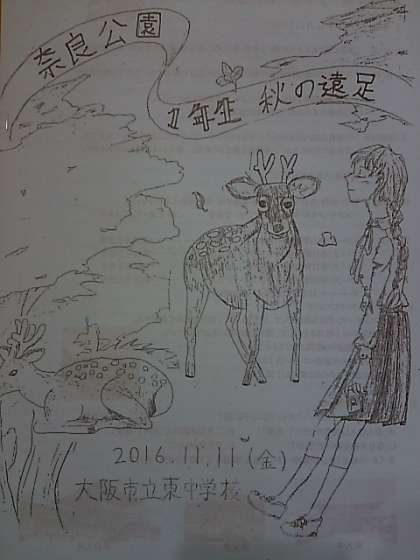 奈良公園
1年生 秋の遠足
2016.11.11(金)
大阪市立東中学校